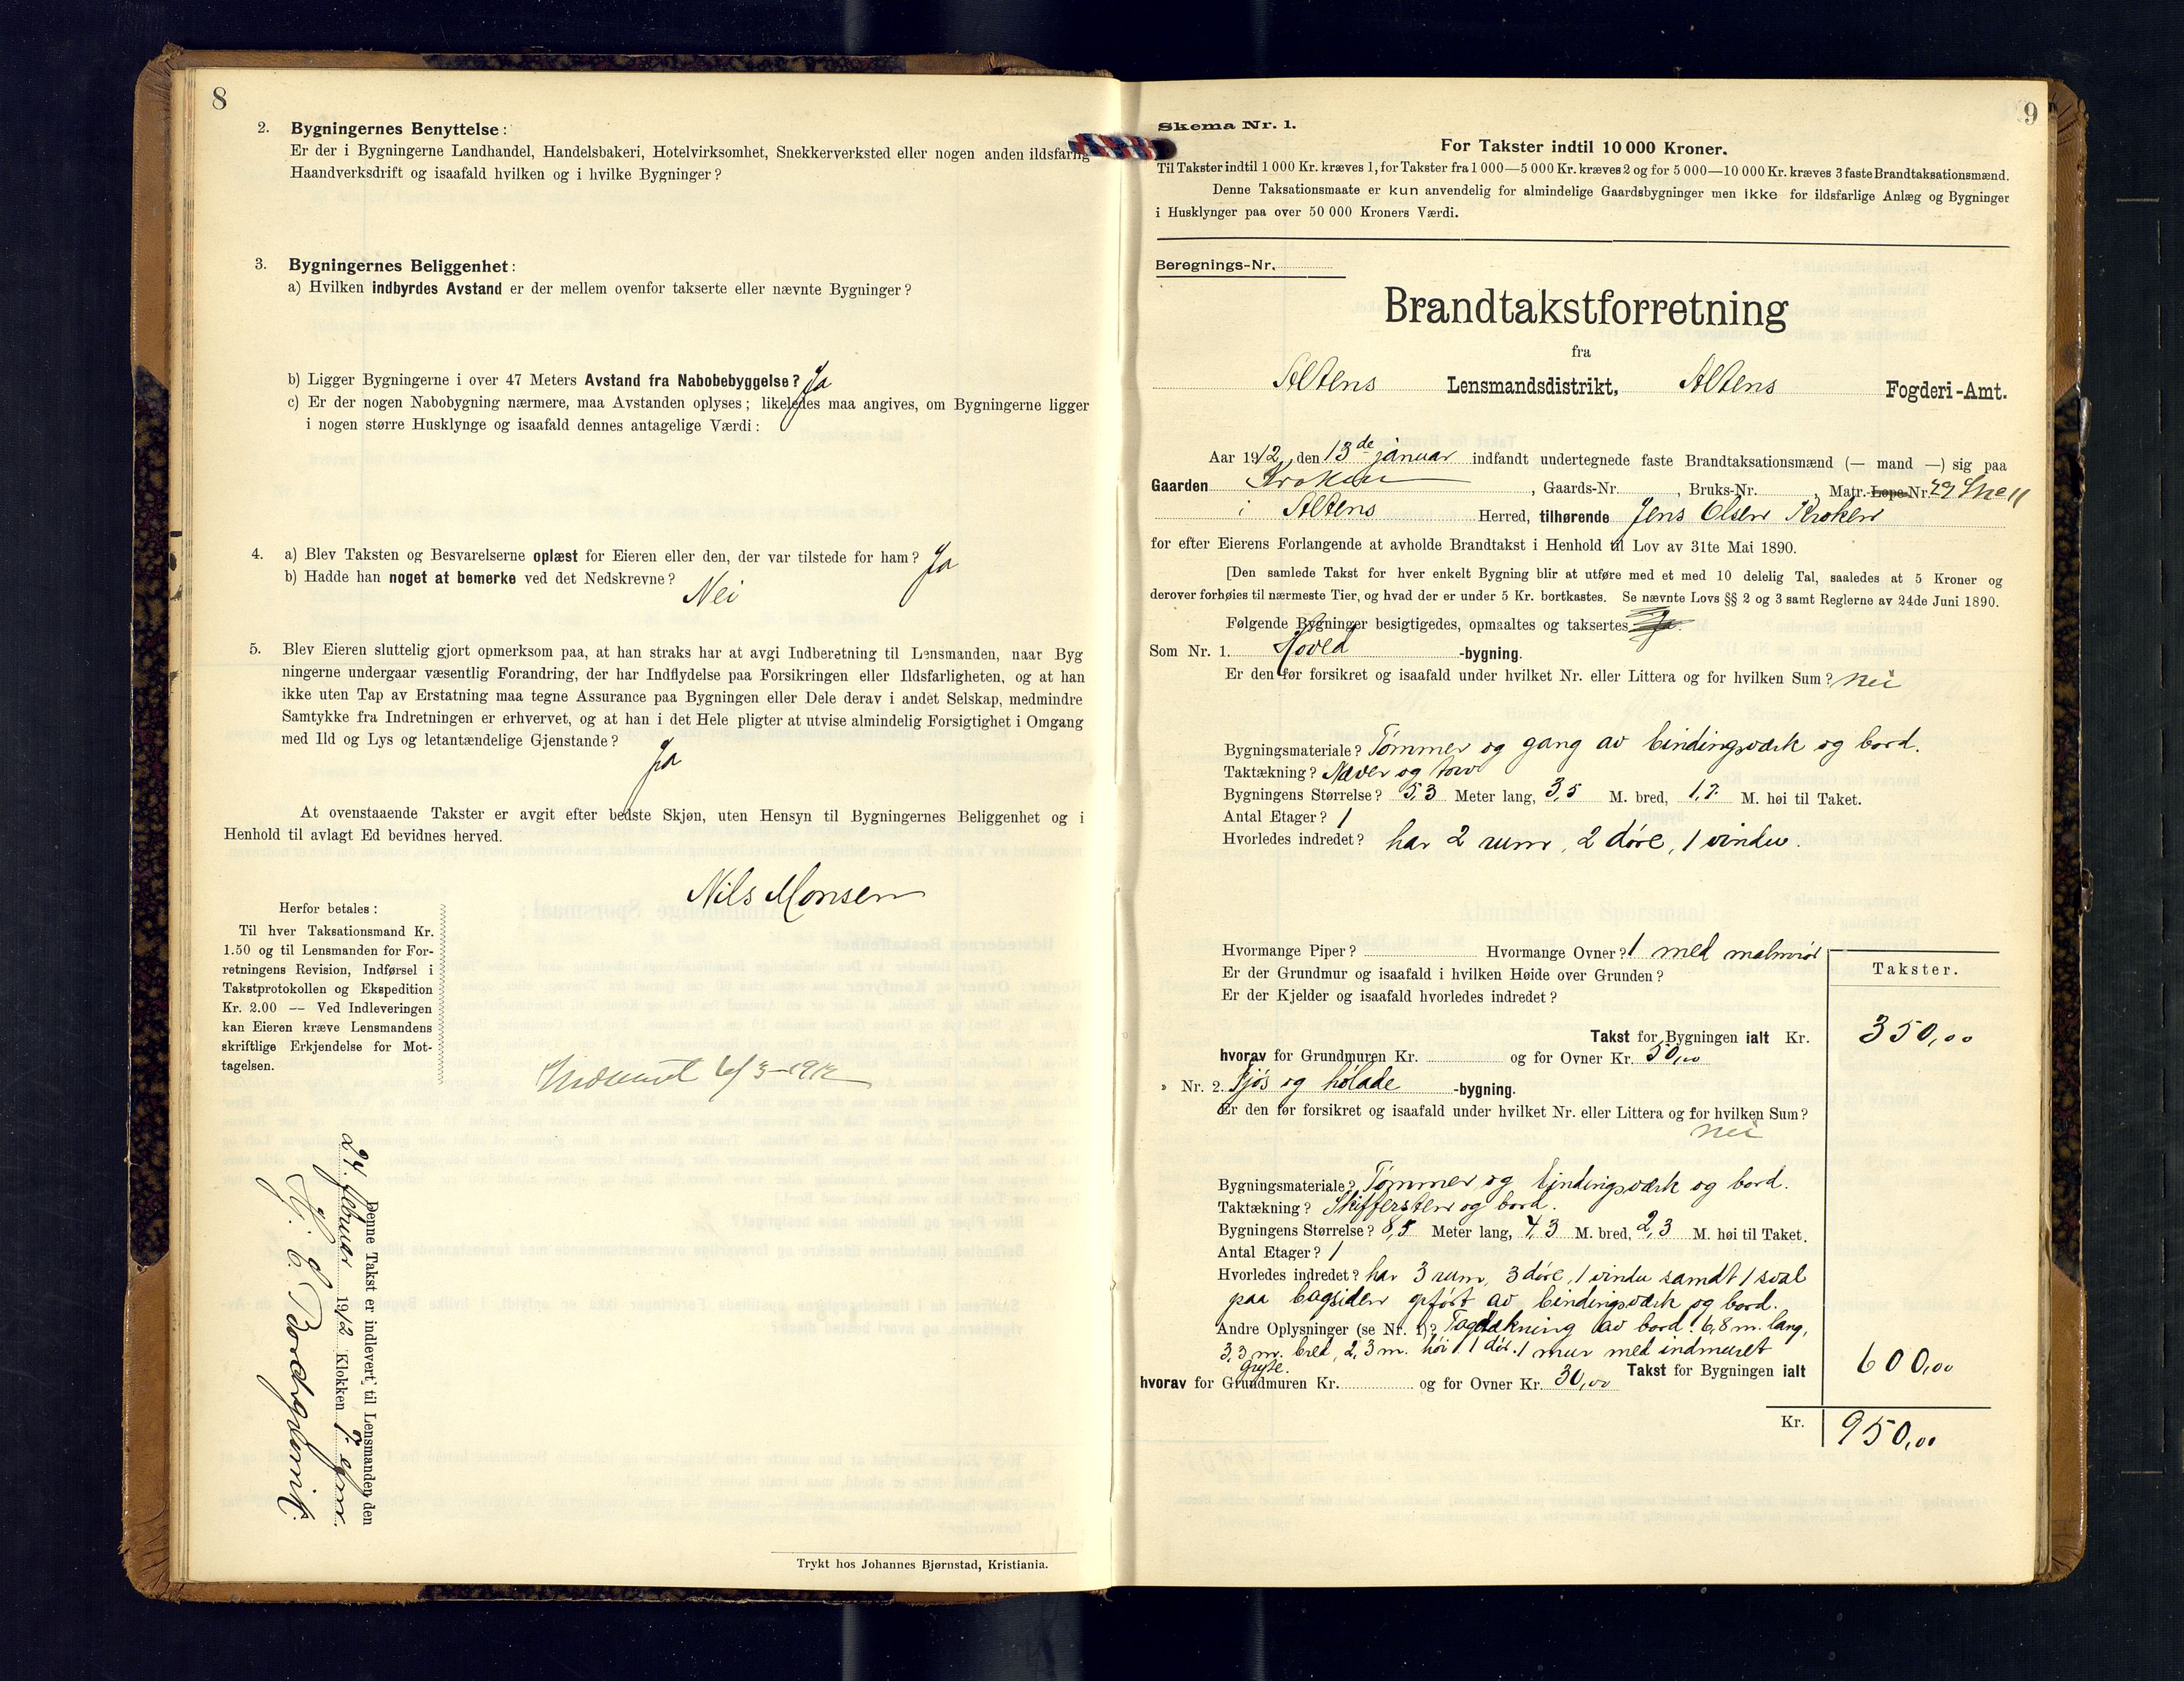 8
2. Bygningernes Benyttelse:
Er der i Bygningerne Landhandel, Handelsbakeri, Hotelvirksomhet, Snekkerverksted eller nogen anden ildsfarlig
Haandverksdrift og isaafald hvilken og i hvilke Bygninger?
3. Bygningernes Beliggenhet:
a) Hvilken indbyrdes Avstand er der mellem ovenfor takserte eller nævnte Bygninger?
b) Ligger Bygningerne i over 47 Meters Avstand fra Nabobebyggelse? Ja
c) Er der nogen Nabobygning nærmere, maa Avstanden oplyses; likeledes maa angives, om Bygningerne ligger
i nogen større Husklynge og isaafald dennes antagelige Værdi:
4. a) Blev Taksten og Besvarelserne oplæst for Eieren eller den, der var tilstede for ham? Ja
b) Hadde han noget at bemerke ved det Nedskrevne?
Nei
5. Blev Eieren sluttelig gjort opmerksom paa, at han straks har at avgi Indberetning til Lensmanden, naar Byg
ningerne undergaar væsentlig Forandring, der har Indflydelse paa Forsikringen eller Ildsfarligheten, og at han
ikke uten Tap av Erstatning maa tegne Assurance paa Bygningen eller Dele derav i andet Selskap, medmindre
Samtykke fra Indretningen er erhvervet, og at han i det Hele pligter at utvise almindelig Forsigtighet i Omgang
med Ild og Lys og letantændelige Gjenstande?
Ja
At ovenstaaende Takster er avgit efter bedste Skjøn, uten Hensyn til Bygningernes Beliggenhet og i
Henhold til avlagt Ed bevidnes herved.
Nils Monsen
Herfor betales:
Til hver Taksationsmand Kr.
1.50 og til Lensmanden for For-
retningens Revision, Indførsel i
Takstprotokollen og Ekspedition
Kr. 2.00 — Ved Indleveringen
kan Eieren kræve Lensmandens
skriftlige Erkjendelse for Mot-
tagelsen.
6/3-1912
Denne Takst er indlevert til Lensmanden den
24. februar 1912 Klokken
Trykt hos Johannes Bjørnstad, Kristiania.
9
Skema Nr. 1.
For Takster indtil 10 000 Kroner.
Til Takster indtil 1 000 Kr. kræves 1, for Takster fra 1 000—5 000 Kr. kræves 2 og for 5 000—10 000 Kr. kræves 3 faste Brandtaksationsmænd.
Denne Taksationsmaate er kun anvendelig for almindelige Gaardsbygninger men ikke for ildsfarlige Anlæg og Bygninger
i Husklynger paa over 50 000 Kroners Værdi.
Beregnings-Nr.
Brandtakstforretning
fra
Altens Lensmandsdistrikt, Altens Fogderi-Amt.
Aar 1912, den 13de januar indfandt undertegnede faste Brandtaksationsmænd (— mand —) sig paa
Gaarden Kroken, Gaards-Nr. , Bruks-Nr. , Matr. Løpe-Nr. 29
i Altens Herred, tilhørende Jens Olsen Kroken
for efter Eierens Forlangende at avholde Brandtakst i Henhold til Lov av 31te Mai 1890.
[Den samlede Takst for hver enkelt Bygning blir at utføre med et med 10 delelig Tal, saaledes at 5 Kroner og
derover forhøies til nærmeste Tier, og hvad der er under 5 Kr. bortkastes. Se nævnte Lovs §§ 2 og 3 samt Reglerne av 24de Juni 1890.
Følgende Bygninger besigtigedes, opmaaltes og taksertes
Som Nr. 1. Hoved -bygning.
Er den før forsikret og isaafald under hvilket Nr. eller Littera og for hvilken Sum? nei
Bygningsmateriale? Tømmer og gang av bindingsværk og bord.
Taktækning? Næver og torv
Bygningens Størrelse? 5,3 Meter lang, 3,5 M. bred, 1,7 M. høi til Taket.
Antal Etager? 1
Hvorledes indredet? har 2 rum, 2 døre, 1 vindu.
Hvormange Piper? Hvormange Ovner? 1 med malmrør
Er der Grundmur og isaafald i hvilken Høide over Grunden?
Er der Kjelder og isaafald hvorledes indredet?
Takster.
Takst for Bygningen ialt Kr. 350,00
hvorav for Grundmuren Kr. og for Ovner Kr. 50,00
» Nr. 2. Fjøs og hølade -bygning.
Er den før forsikret og isaafald under hvilket Nr. eller Littera og for hvilken Sum?
nei
Bygningsmateriale? Tømmer og bindingsværk og bord.
Taktækning? Skiffersten og bord.
Bygningens Størrelse? 8,5 Meter lang, 4,3 M. bred, 2,3 M. høi til Taket.
Antal Etager? 1
Hvorledes indredet? har 3 rum, 3 døre, 1 vindu samdt 1 sval
paa bagsiden opført av bindingsværk og bord.
Andre Oplysninger (se Nr. 1)? Tagdækning av bord. 6,8 m. lang,
3,3 m. bred, 2,3 m. høi. 1 dør. 1 mur med indmuret
gryte. Takst for Bygningen ialt 600,00
hvorav for Grundmuren Kr. og for Ovner Kr. 30,00
Kr. 950,00